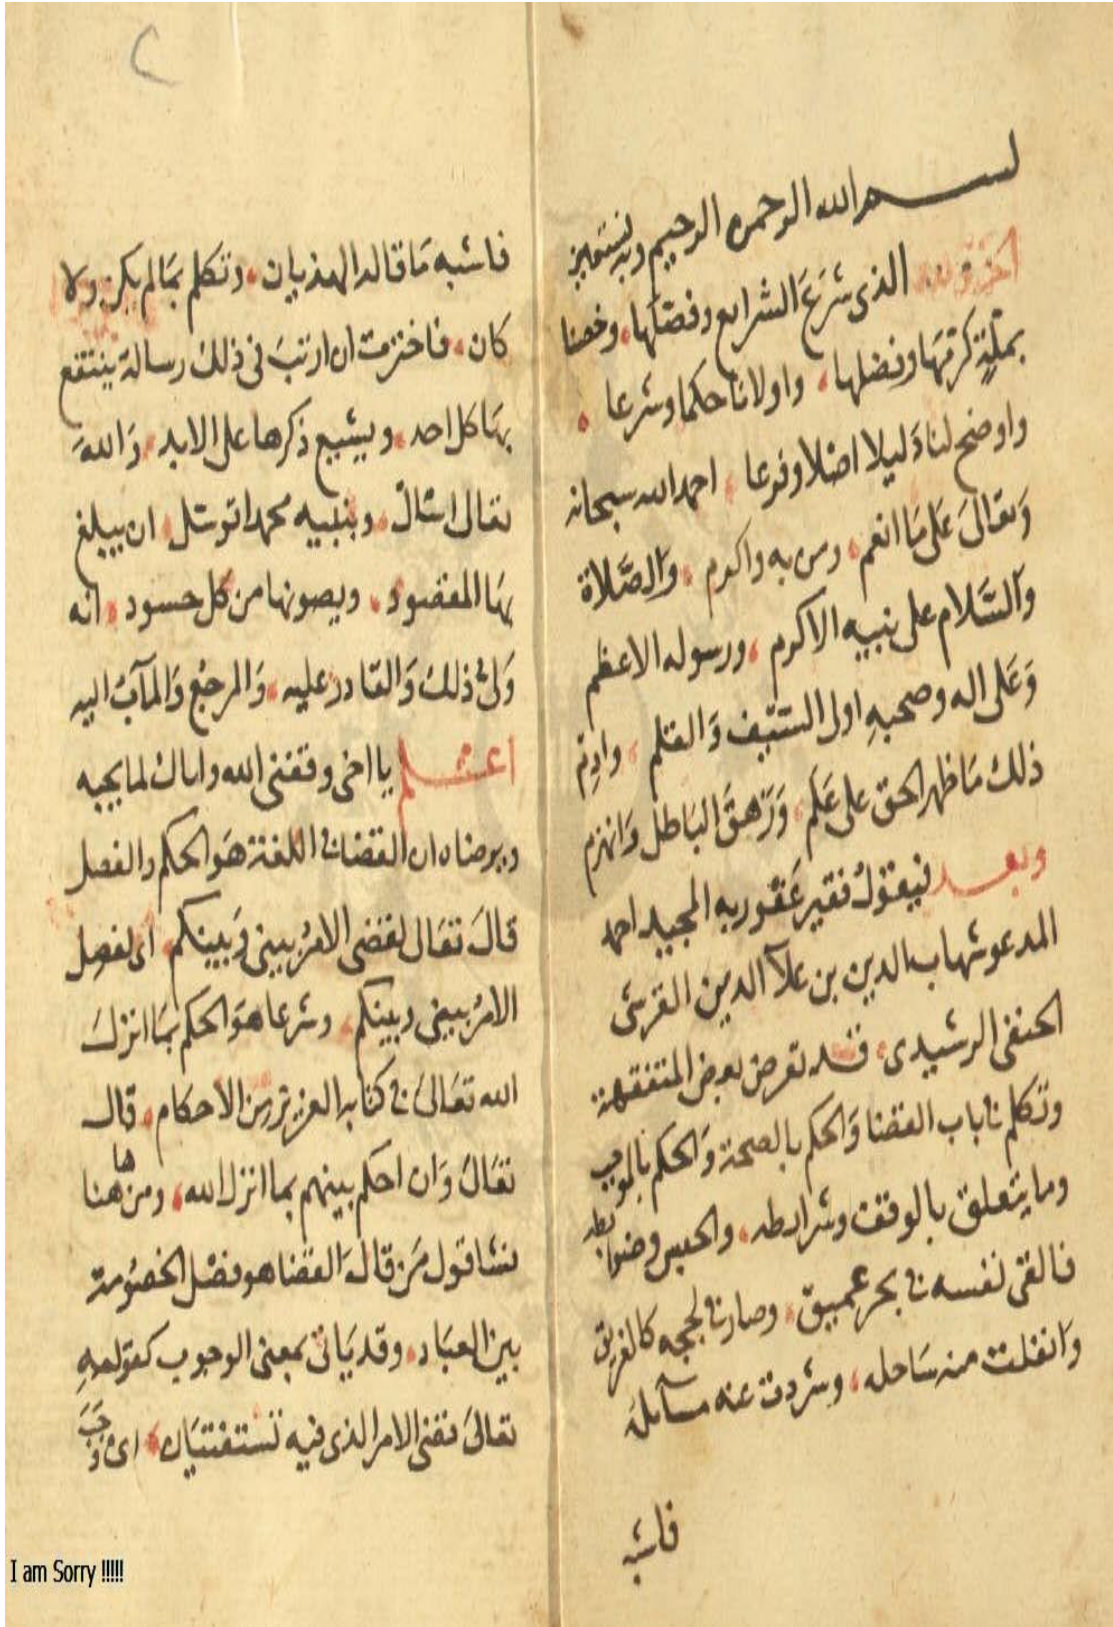 بسم الله الرحمن الرحيم وبه نستعين
الحمد لله الذى شرع الشرايع وفصلها، وخصنا
بملة كرمها وفضلها، واولانا حكما وشرعا،
واوضح لنا دليلا اصلا وفرعا، احمد الله سبحانه
وتعالى على ما انعم، ومن به واكرم، والصلاة
والسلام على نبيه الاكرم، ورسوله الاعظم
وعلى اله وصحبه اول السيف والقلم، وادم
ذلك ما ظهر الحق على علم، وزهق الباطل وانهزم
وبعد فيقول فقير عفو ربه المجيد احمد
المدعو شهاب الدين بن علآ الدين القرشى
الحنفى الرشيدى، قد تعرض بعض المتفقهة
وتكلم فى باب القضا والحكم بالصحة والحكم بالموجب
وما يتعلق بالوقف وشرايطه، والحبس وضوابطه
فالقى نفسه فى بحر عميق، وصار فى لججه كالغريق
وانفلت منه ساحله، وشردت عنه مسآيله
فاشبه
٢
فاشبه ما قاله الهذيان، وتكلم بما لم يكن ولا
كان، فاخترت ان ارتب فى ذلك رسالة ينتفع
بها كل احد، ويشيع ذكرها على الابد، والله
تعالى اسال، وبنبيه محمد اتوسل، ان يبلغ
بها المقصود، ويصونها من كل حسود، انه
ولى ذلك والقادر عليه، والمرجع والمآب اليه
اعلم يا اخى وفقنى الله واياك لما يحبه
ويرضاه ان القضا فى اللغة هو الحكم والفصل
قال تعالى لقضى الامر بينى وبينكم، اى لفصل
الامر بينى وبينكم، وشرعا هو الحكم بما انزل
الله تعالى فى كتابه العزيز من الاحكام، قال
تعالى وان احكم بينهم بما انزل الله، ومن هاهنا
نشا قول من قال القضا هو فصل الخصومة
بين العباد، وقد ياتى بمعنى الوجوب كقوله
تعالى قضى الامر الذى فيه تستفتيان، اى وجب
I am Sorry !!!!!